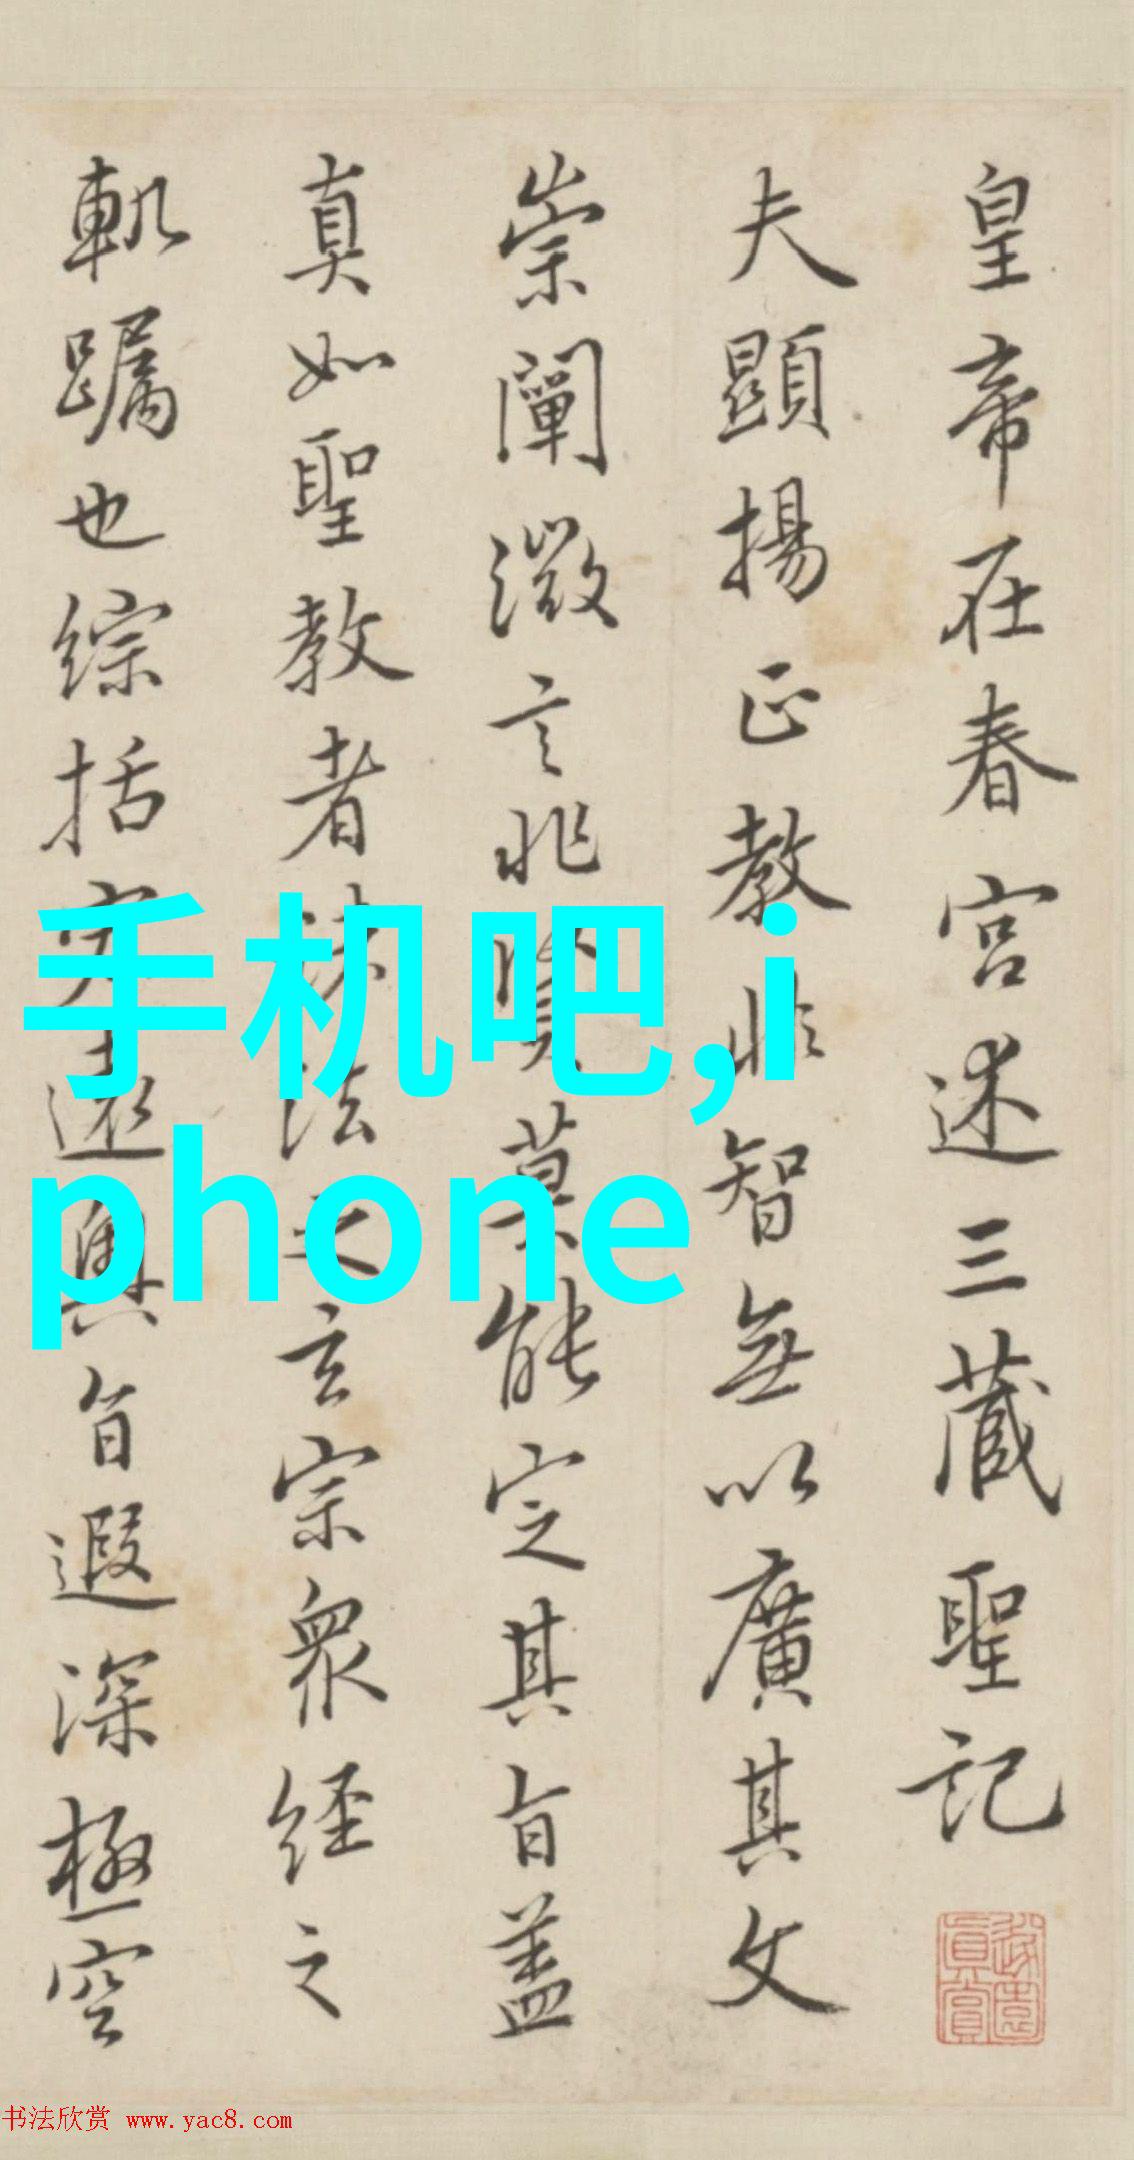 皇帝在春宫述三藏聖記
夫顯揚正教非智無以廣其文
崇闡微言非賢莫能定其旨蓋
真如聖教者諸法之玄宗眾經之
軌躅也綜括宏遠奧旨遐深極空
手机吧,i
phone
书法欣赏 www.yac8.com